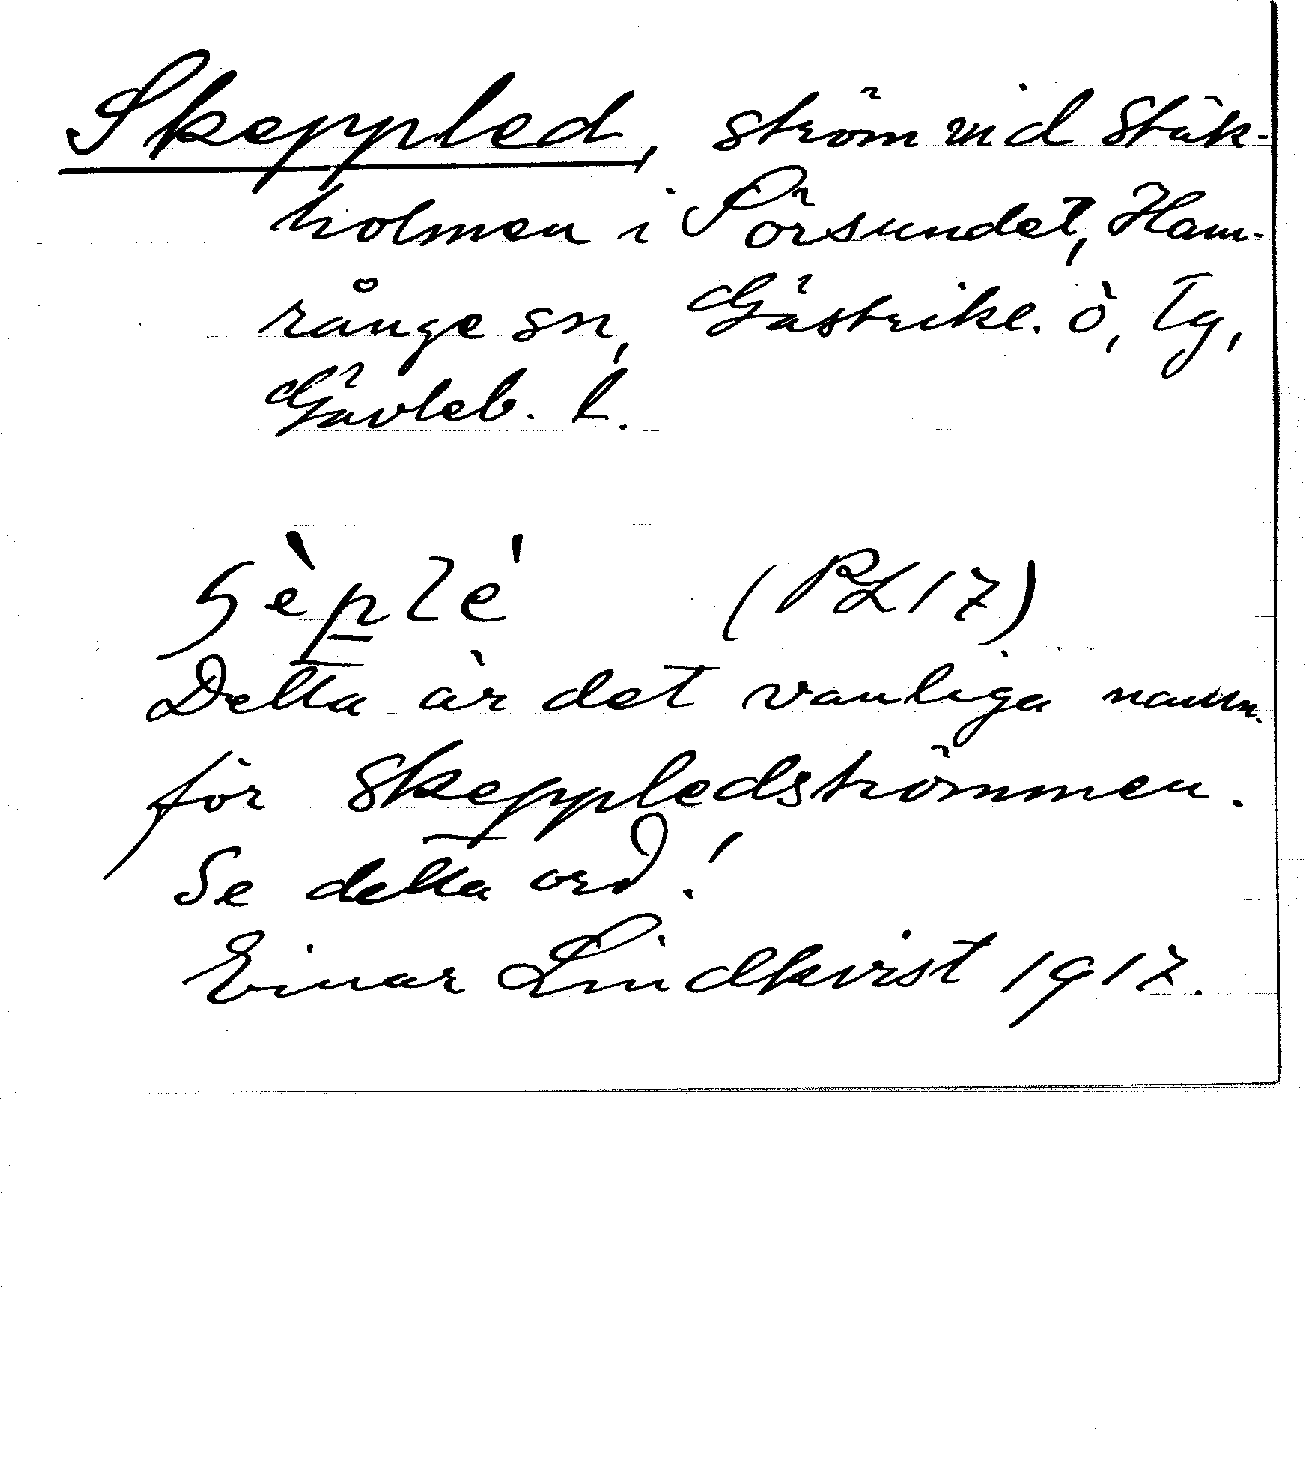 Skeppled, ström vid Stäk-
holmen i Sörsundet, Ham-
rånge sn, Gästrikl. ö, Tg,
Gävleb. l.
(PL17)
Detta är det vanliga namn.
för Skeppledströmmen.
Se detta ord!
Einar Lindkvist 1917.